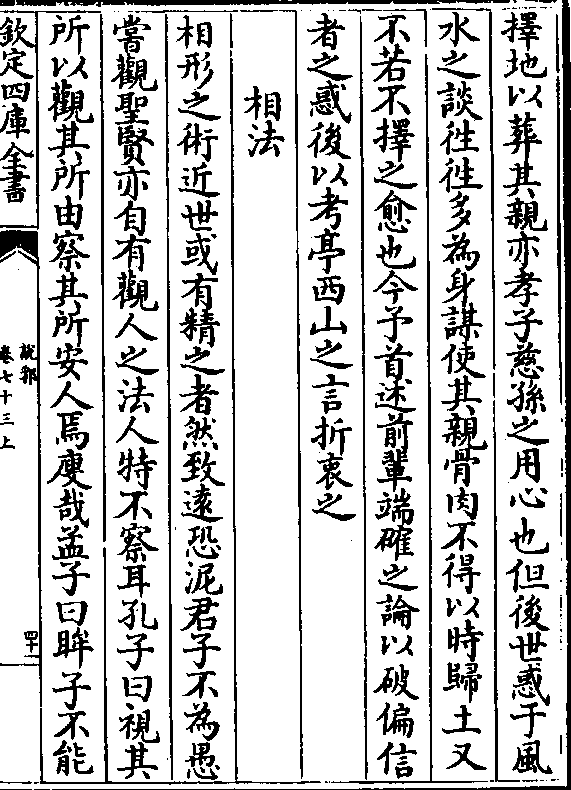 擇地以葬其親亦孝子慈孫之用心也但後世惑于風
水之談徃徃多為身謀使其親骨肉不得以時歸土又
不若不擇之愈也今予首述前輩端確之論以破偏信
者之惑後以考亭西山之言折衷之
相法
相形之術近世或有精之者然致遠恐泥君子不為愚
嘗觀聖賢亦自有觀人之法人特不察耳孔子曰視其
所以觀其所由察其所安人焉廋哉孟子曰眸子不能
欽定四庫全書
說郛
卷七十三上
四十一